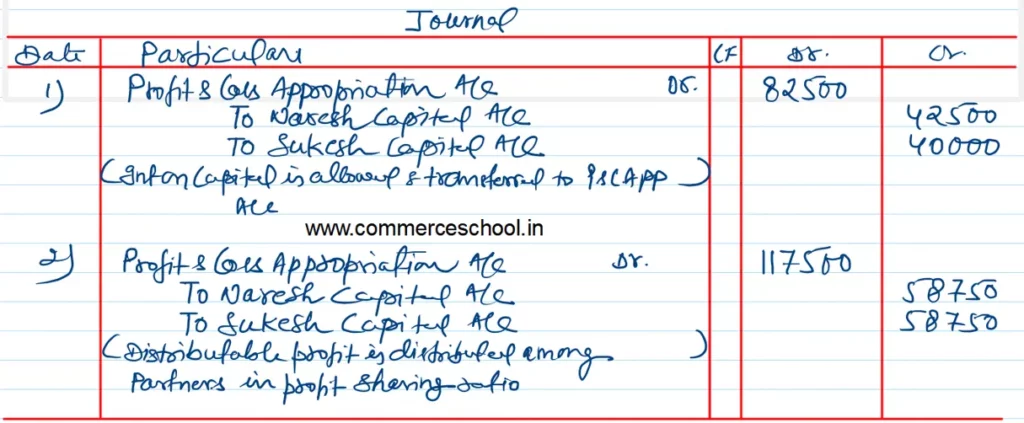 Journal
Date Particulars LF Dr. Cr.
1) Profit & Loss Appropriation A/c Dr. 82500
To Naresh Capital A/c 42500
To Sukesh Capital A/c 40000
(Int on Capital is allowed & transferred to P&L APP
A/c)
www.commerceschool.in
2) Profit & Loss Appropriation A/c Dr. 117500
To Naresh Capital A/c 58750
To Sukesh Capital A/c 58750
(Distributable profit is distributed among
Partners in profit sharing ratio)